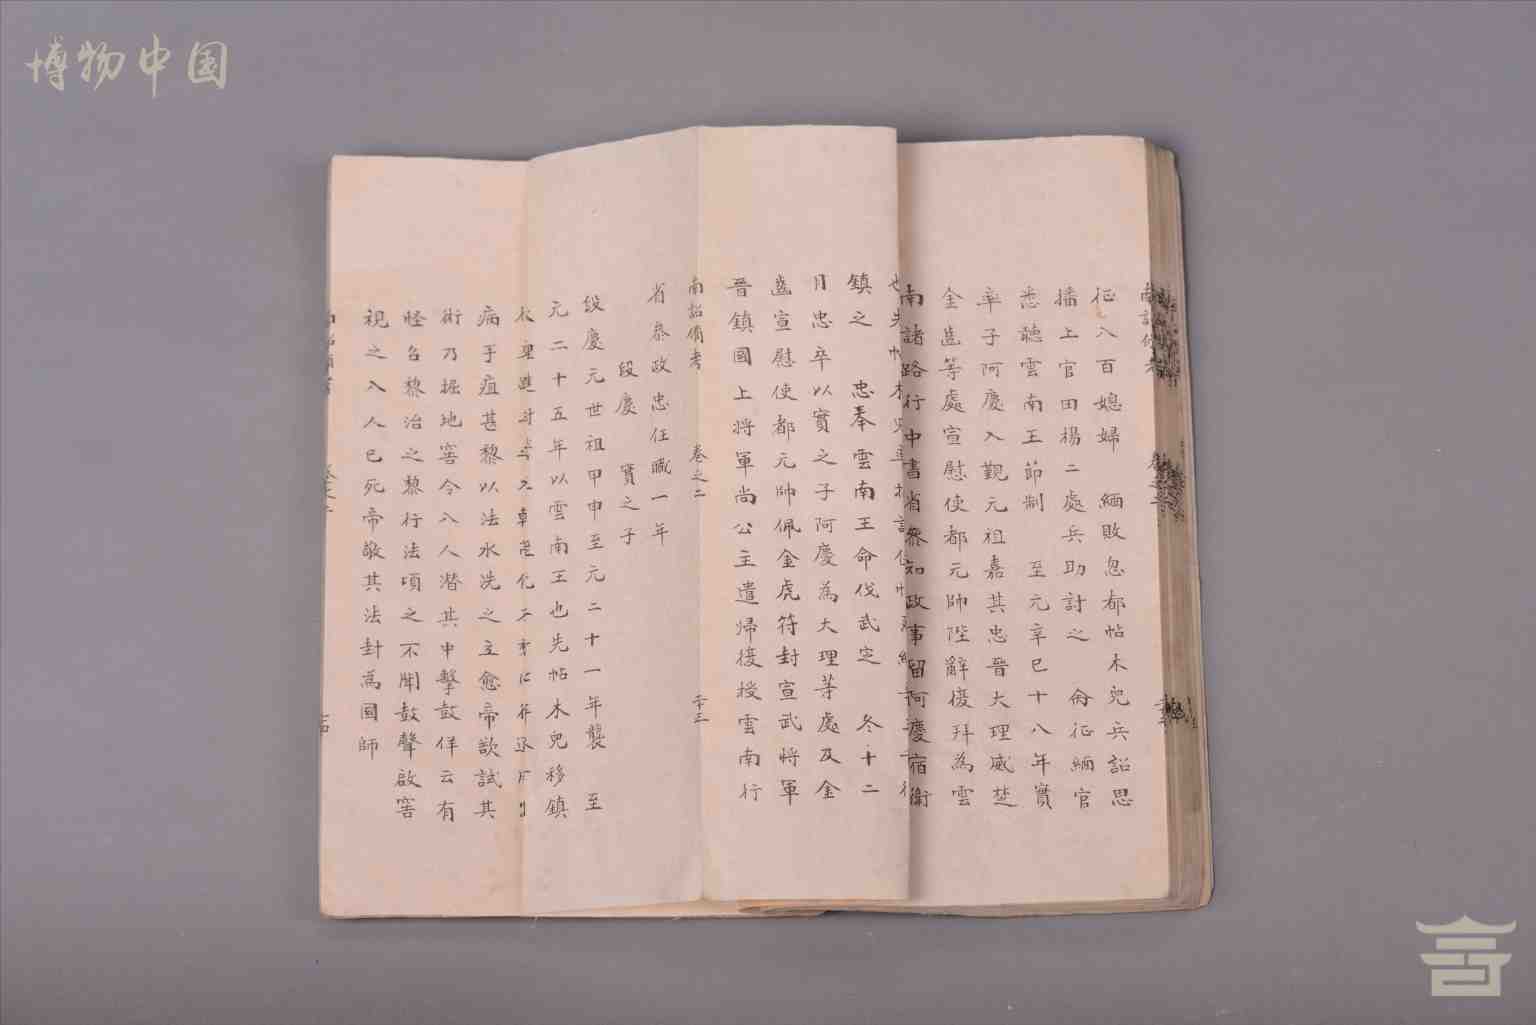 博物中国
征八百媳婦 緬敗忽都帖木兒兵詔思
播上官田楊二處兵助討之 命征緬官
悉聽雲南王節制 至元辛巳十八年實
卒子阿慶入覲元祖嘉其忠晉大理威楚
金齒等處宣慰使都元帥陛辭復拜為雲
南諸路行中書省參知政事留阿慶宿衛
鎮之 忠奉雲南王命伐武定 冬十二
月忠卒以實之子阿慶為大理等處及金
齒宣慰使都元帥佩金虎符封宣武將軍
晉鎮國上將軍尚公主遣歸復授雲南行
南詔備考 卷之二 二十三
省參政忠任職一年
段慶 實之子
段慶元世祖甲申至元二十一年襲 至
元二十五年以雲南王也先帖木兒移鎮
病手疽甚黎以法水洗之立愈帝欲試其
術乃掘地窖令八人潛其中擊鼓佯云有
怪召黎治之黎行法頃之不聞鼓聲啟窖
視之八人已死帝敬其法封為國師